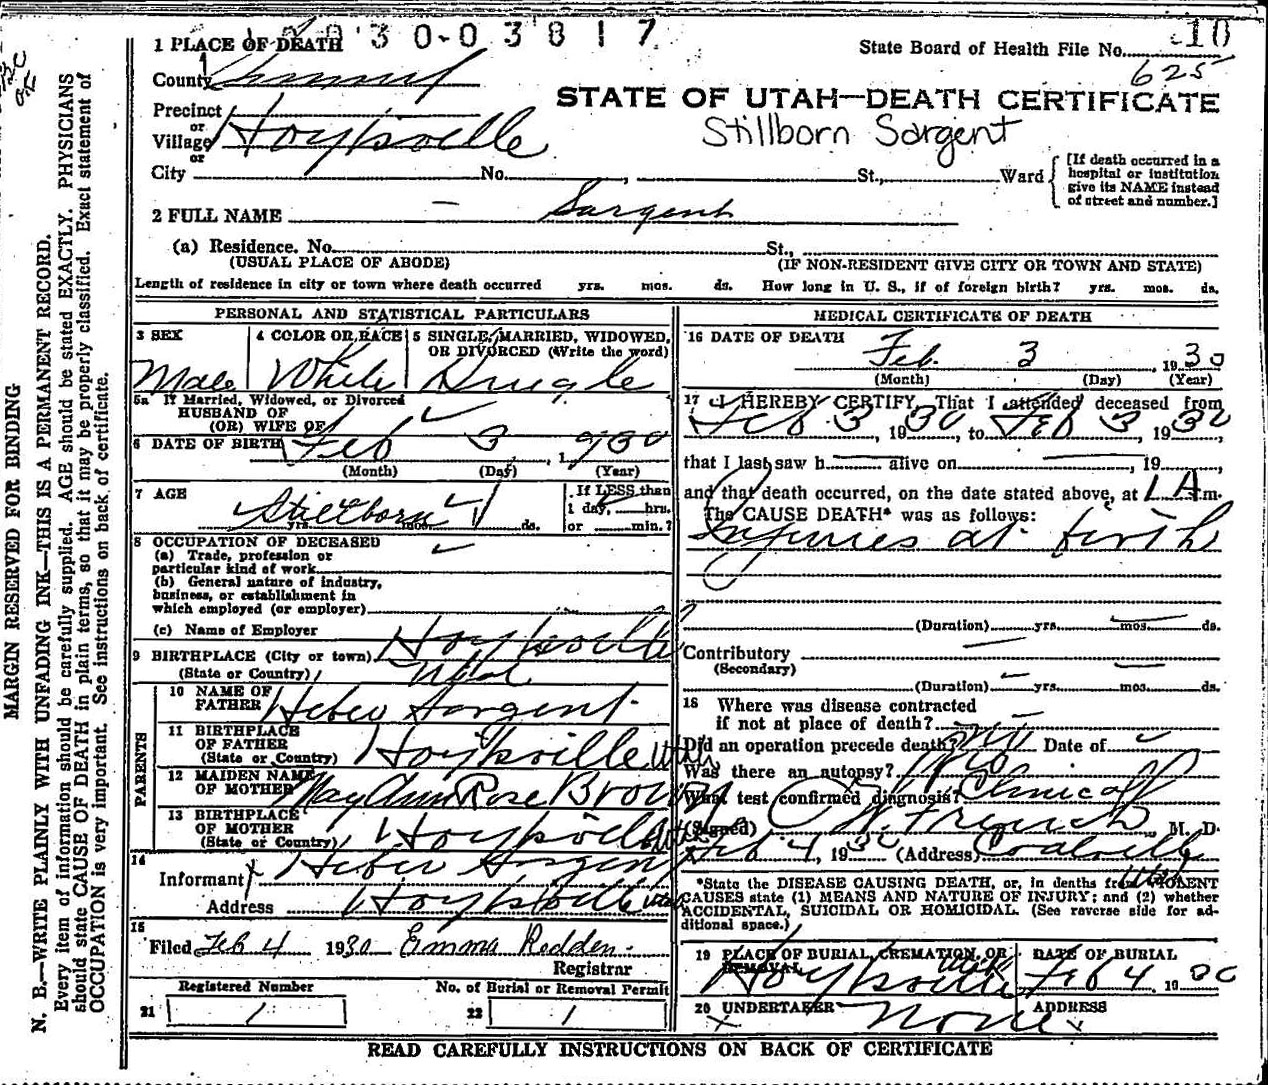 30-03817
1 PLACE OF DEATH
State Board of Health File No. 10
County Summit
625
STATE OF UTAH—DEATH CERTIFICATE
Precinct
or
Village Hoytsville
or
Stillborn Sargent
City No. , St., Ward
[If death occurred in a
hospital or institution
give its NAME instead
of street and number.]
2 FULL NAME — Sargent
(a) Residence. No. St.,
(USUAL PLACE OF ABODE) (IF NON-RESIDENT GIVE CITY OR TOWN AND STATE)
Length of residence in city or town where death occurred yrs. mos. ds. How long in U. S., if of foreign birth? yrs. mos. ds.
PERSONAL AND STATISTICAL PARTICULARS
3 SEX 4 COLOR OR RACE 5 SINGLE, MARRIED, WIDOWED,
OR DIVORCED (Write the word)
Male White Single
5a If Married, Widowed, or Divorced
HUSBAND OF
(OR) WIFE OF
6 DATE OF BIRTH Feb 3, 1930
(Month) (Day) (Year)
7 AGE Stillborn
yrs. mos. ds.
If LESS than
1 day, hrs.
or min.?
8 OCCUPATION OF DECEASED
(a) Trade, profession or
particular kind of work
(b) General nature of industry,
business, or establishment in
which employed (or employer)
(c) Name of Employer
9 BIRTHPLACE (City or town) Hoytsville
(State or Country) Utah
PARENTS
10 NAME OF
FATHER Heber Sargent
11 BIRTHPLACE
OF FATHER
(State or Country) Hoytsville Utah
12 MAIDEN NAME
OF MOTHER May Ann Rose Brown
13 BIRTHPLACE
OF MOTHER
(State or Country) Hoytsville Utah
14
Informant Heber Sargent
Address Hoytsville Utah
15
Filed Feb 4 1930 Emma Redden
Registrar
Registered Number No. of Burial or Removal Permit
21 1 22 1
MEDICAL CERTIFICATE OF DEATH
16 DATE OF DEATH
Feb. 3, 1930
(Month) (Day) (Year)
17 I HEREBY CERTIFY, That I attended deceased from
Feb 3, 1930, to Feb 3, 1930,
that I last saw h alive on , 19 ,
and that death occurred, on the date stated above, at 1 A m.
The CAUSE DEATH* was as follows:
Injuries at birth
(Duration) yrs. mos. ds.
Contributory
(Secondary)
(Duration) yrs. mos. ds.
18 Where was disease contracted
if not at place of death?
Did an operation precede death? no Date of
Was there an autopsy? No
What test confirmed diagnosis? Clinical
(Signed) W. French, M. D.
Feb 4, 1930 (Address) Coalville Utah
*State the DISEASE CAUSING DEATH, or, in deaths from VIOLENT
CAUSES state (1) MEANS AND NATURE OF INJURY; and (2) whether
ACCIDENTAL, SUICIDAL OR HOMICIDAL. (See reverse side for ad-
ditional space.)
19 PLACE OF BURIAL, CREMATION, OR
REMOVAL DATE OF BURIAL
Hoytsville Utah Feb 4, 1930
20 UNDERTAKER ADDRESS
None
READ CAREFULLY INSTRUCTIONS ON BACK OF CERTIFICATE
MARGIN RESERVED FOR BINDING
N. B.—WRITE PLAINLY WITH UNFADING INK—THIS IS A PERMANENT RECORD.
Every item of information should be carefully supplied. AGE should be stated EXACTLY. PHYSICIANS
should state CAUSE OF DEATH in plain terms, so that it may be properly classified. Exact statement of
OCCUPATION is very important. See instructions on back of certificate.